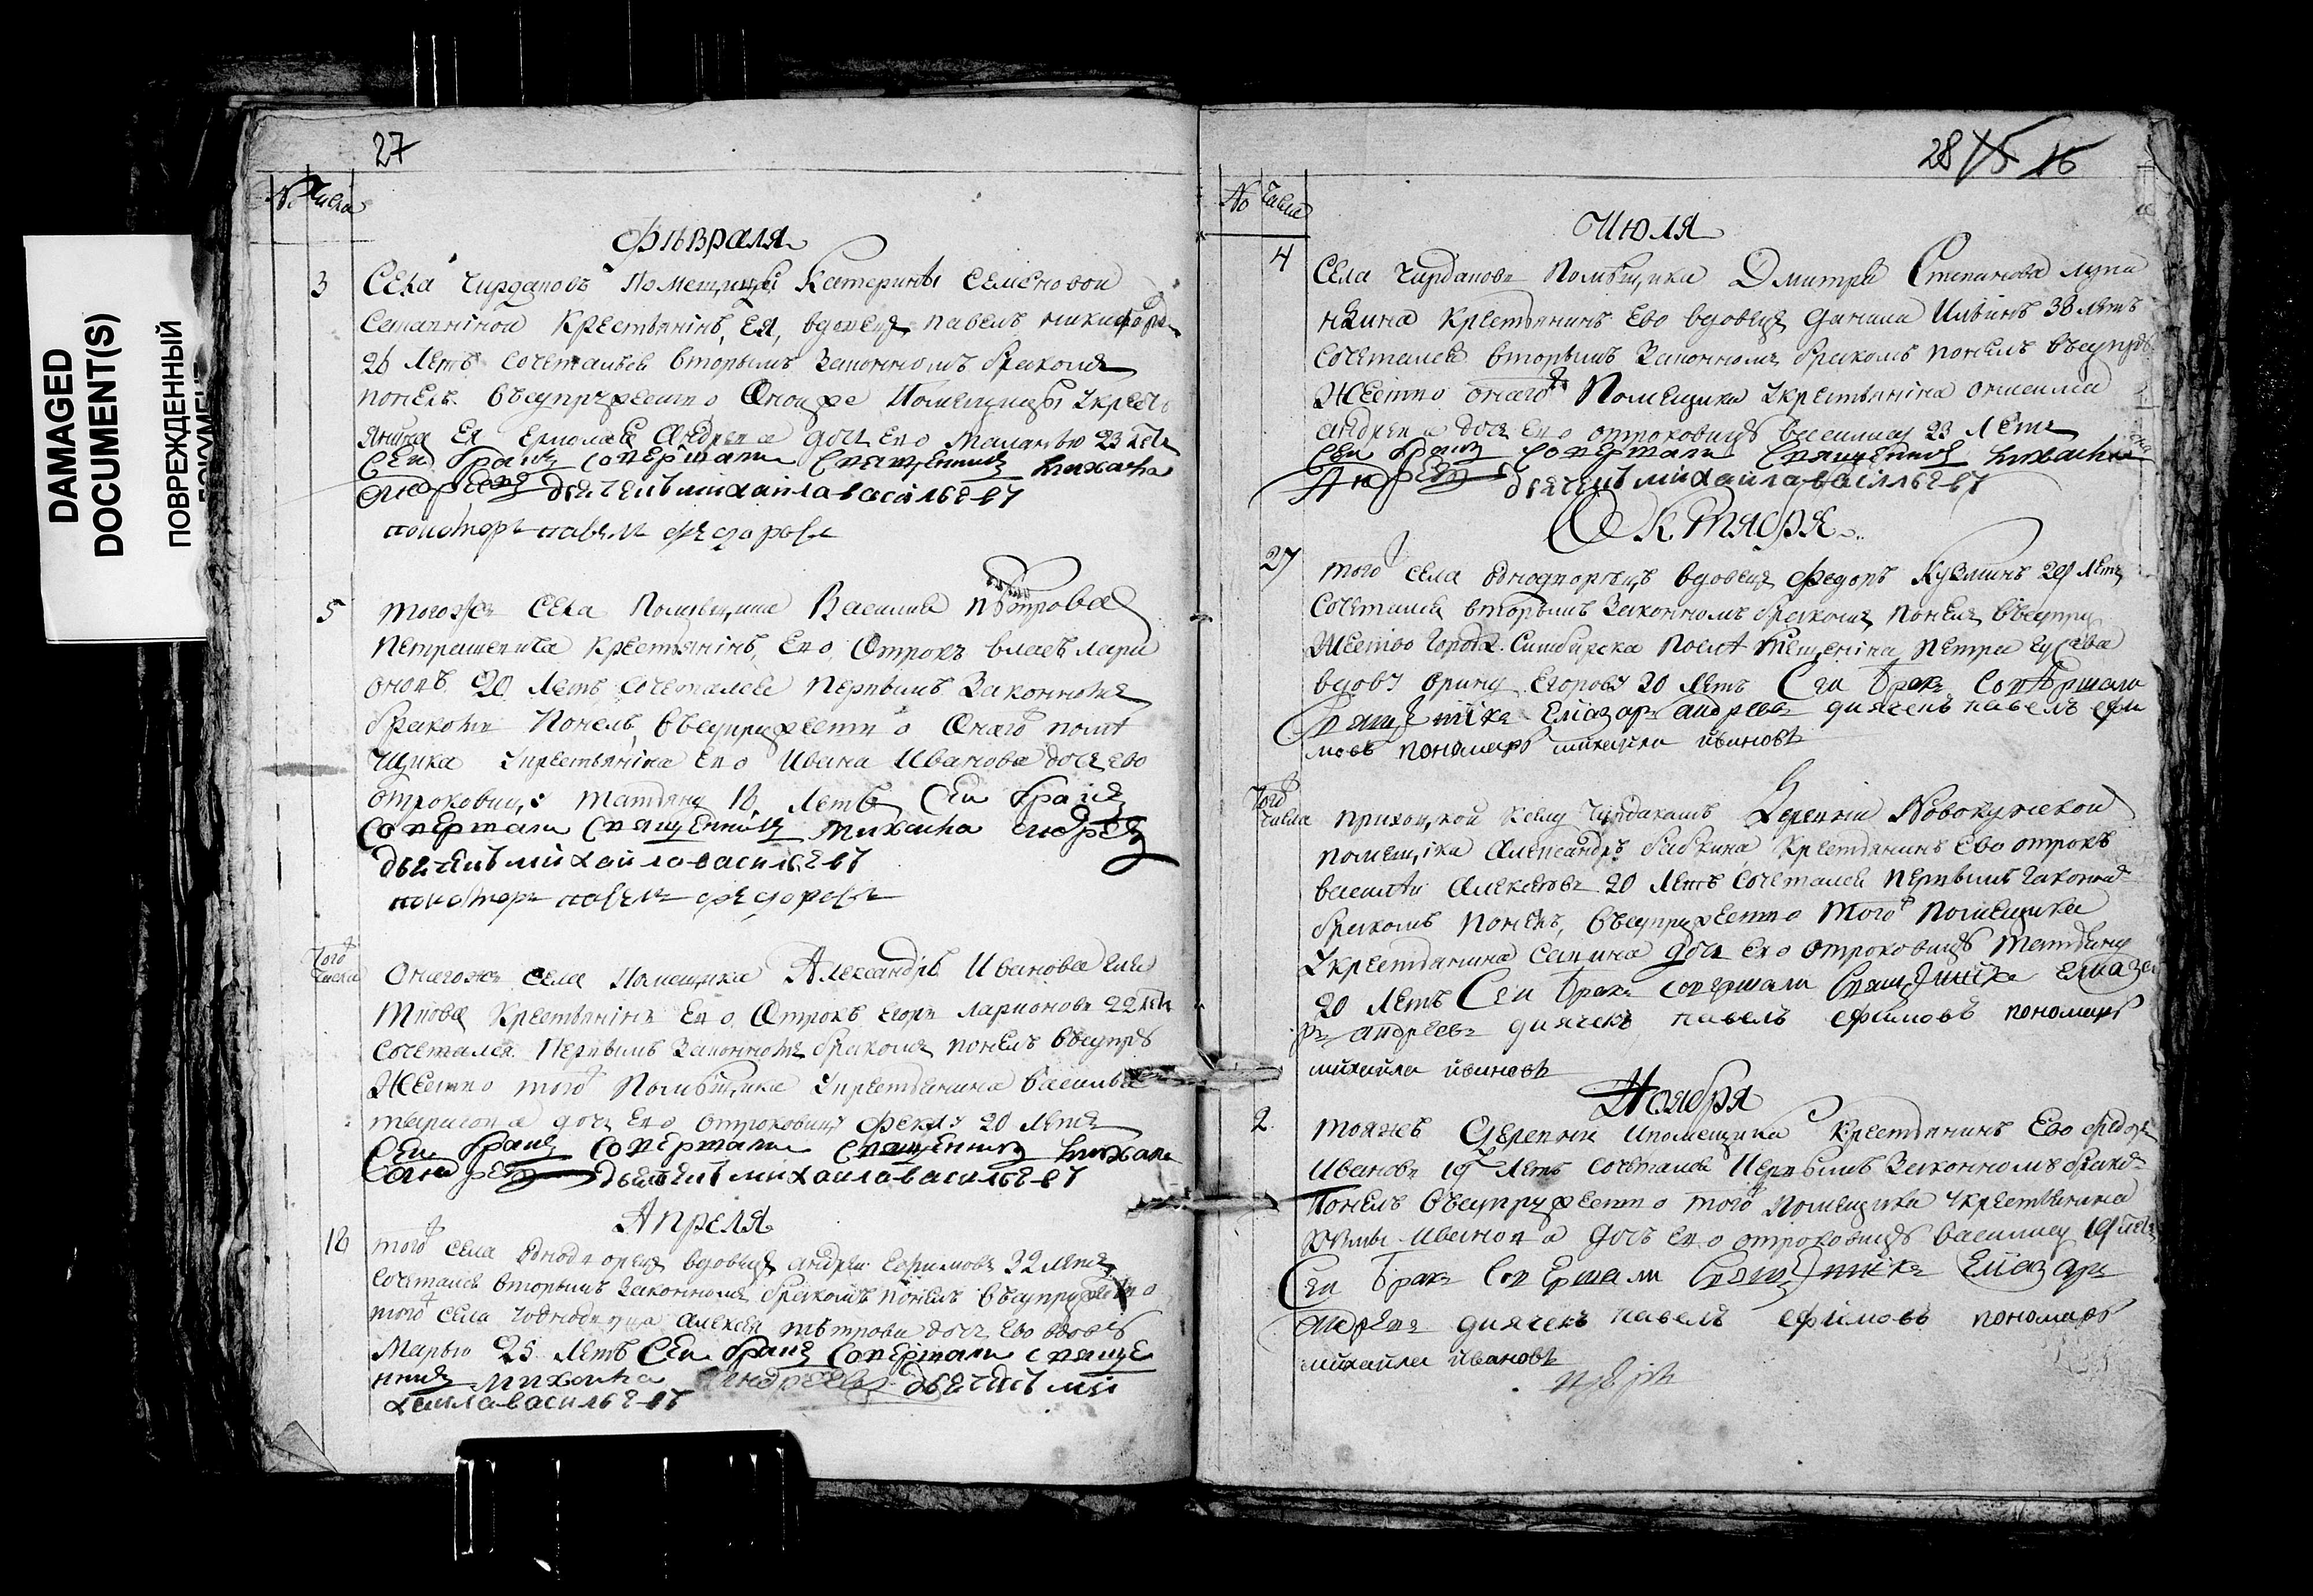 DAMAGED
DOCUMENT(S)
ПОВРЕЖДЕННЫЙ
27
№ Числа
Февраля
3 Села Чирдаковъ Помещицы Катерины Семеновой
Крестьянинъ Ея, вдовецъ Павелъ Никифоровъ
26 Летъ сочетался вторымъ Законномъ бракомъ
понелъ въсупружество Оной же Помещицы Укресть
янина Ея Ермолая Андреева дочь Ево Маланью 23 летъ
Сей бракъ совершали Священникъ Михаила
Андреевъ дьячекъ михаила васильевъ
пономарь павелъ федоровъ
5 Тогожъ Села Помещика Василия Петрова
Крестьянинъ Ево Отрокъ власъ лари
оновъ 20 Летъ Сочетался первымъ Законнымъ
бракомъ Понелъ въсупружество Онаго поме
щика Укрестьянина Ево Ивана Иванова дочь ево
отроковицу татьяну 18 Летъ Сей бракъ
Совершали Священникъ Михаила Андреевъ
дьячекъ михаила васильевъ
пономарь павелъ федоровъ
Того числа Онагожъ села Помещика Александра Иванова
Крестьянинъ Ево Отрокъ Егоръ Ларионовъ 22 летъ
Сочетался Первымъ Законнымъ бракомъ понелъ въсупру
жество того Помещика Укрестьянина Василья
дочь Ево отроковицу феклу 20 Летъ
Сей бракъ Совершали Священникъ Михаила
Андреевъ дьячекъ михаила васильевъ
Апреля
18 того села однодворецъ вдовецъ андрей Ефимовъ 32 Летъ
Сочетался вторымъ Законнымъ бракомъ понелъ въсупружество
того села Уоднодворца Алексея петрова дочь Ево вдову
Марью 25 Летъ Сей бракъ Совершали свяще
нникъ Михаила Андреевъ дьячекъ ми
хаила васильевъ
28 15 16
№ Числа
Июля
4 Села Чирдакова Помещика Дмитрея Степанова Лупа
ндина Крестьянинъ Ево вдовецъ Данила Ильинъ 38 летъ
сочетался вторымъ Законномъ бракомъ понелъ въсупру
жество онаго Помещика Укрестьянина
андреева дочь Ево отроковицу василису 23 Летъ
Сей бракъ Совершали Священникъ Михаила
Андреевъ дьячекъ михаила васильевъ
Октября
27 того села однодворецъ вдовецъ Федотъ Кузминъ 29 Летъ
Сочетался вторымъ Законномъ бракомъ понелъ въсупру
жество города Синбирска Петра Гусева
вдову Орину Егорову 20 летъ Сей бракъ Совершали
Священникъ Елиазаръ андреевъ диячекъ павелъ ефи
мовъ пономарь михайла ивановъ
Того числа Деревни Новокужской
помещика Александра Крестьянинъ Ево отрокъ
василей Алексеевъ 20 Летъ Сочетался первымъ законнымъ
бракомъ понелъ въсупружество того помещика
Укрестьянина дочь Ево отроковицу татьяну
20 Летъ Сей бракъ совершали Священникъ Елиаза
ръ андреевъ диячекъ павелъ ефимовъ пономарь
михайла ивановъ
Ноября
2 тояжъ Деревни Ипомещика Крестьянинъ Ево Федоръ
Ивановъ 19 Летъ сочетался Первымъ Законномъ бракомъ
Понелъ въсупружество того Помещика Укрестьянина
Иванова дочь Ево отроковицу василису 19 летъ
Сей бракъ Совершали Священникъ Елиазаръ
Андреевъ диячекъ павелъ ефимовъ пономарь
михайла ивановъ